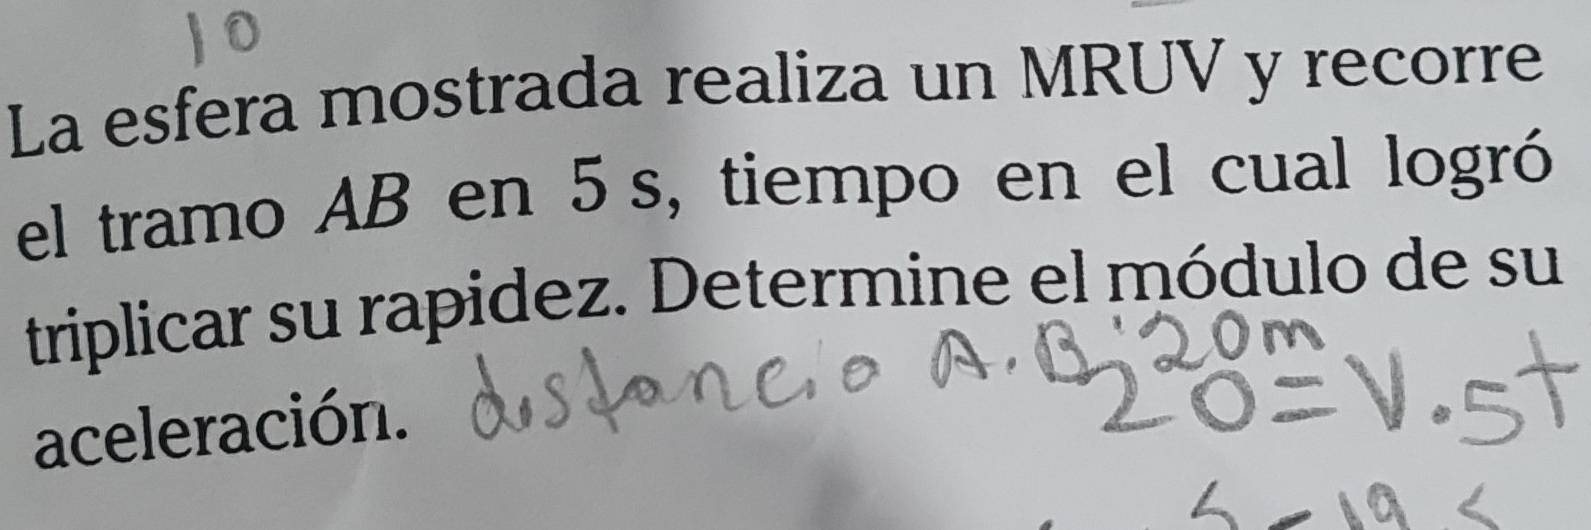 10
La esfera mostrada realiza un MRUV y recorre
el tramo AB en 5 s, tiempo en el cual logró
triplicar su rapidez. Determine el módulo de su
aceleración.
distancia A.B; 20m
20=V.5t